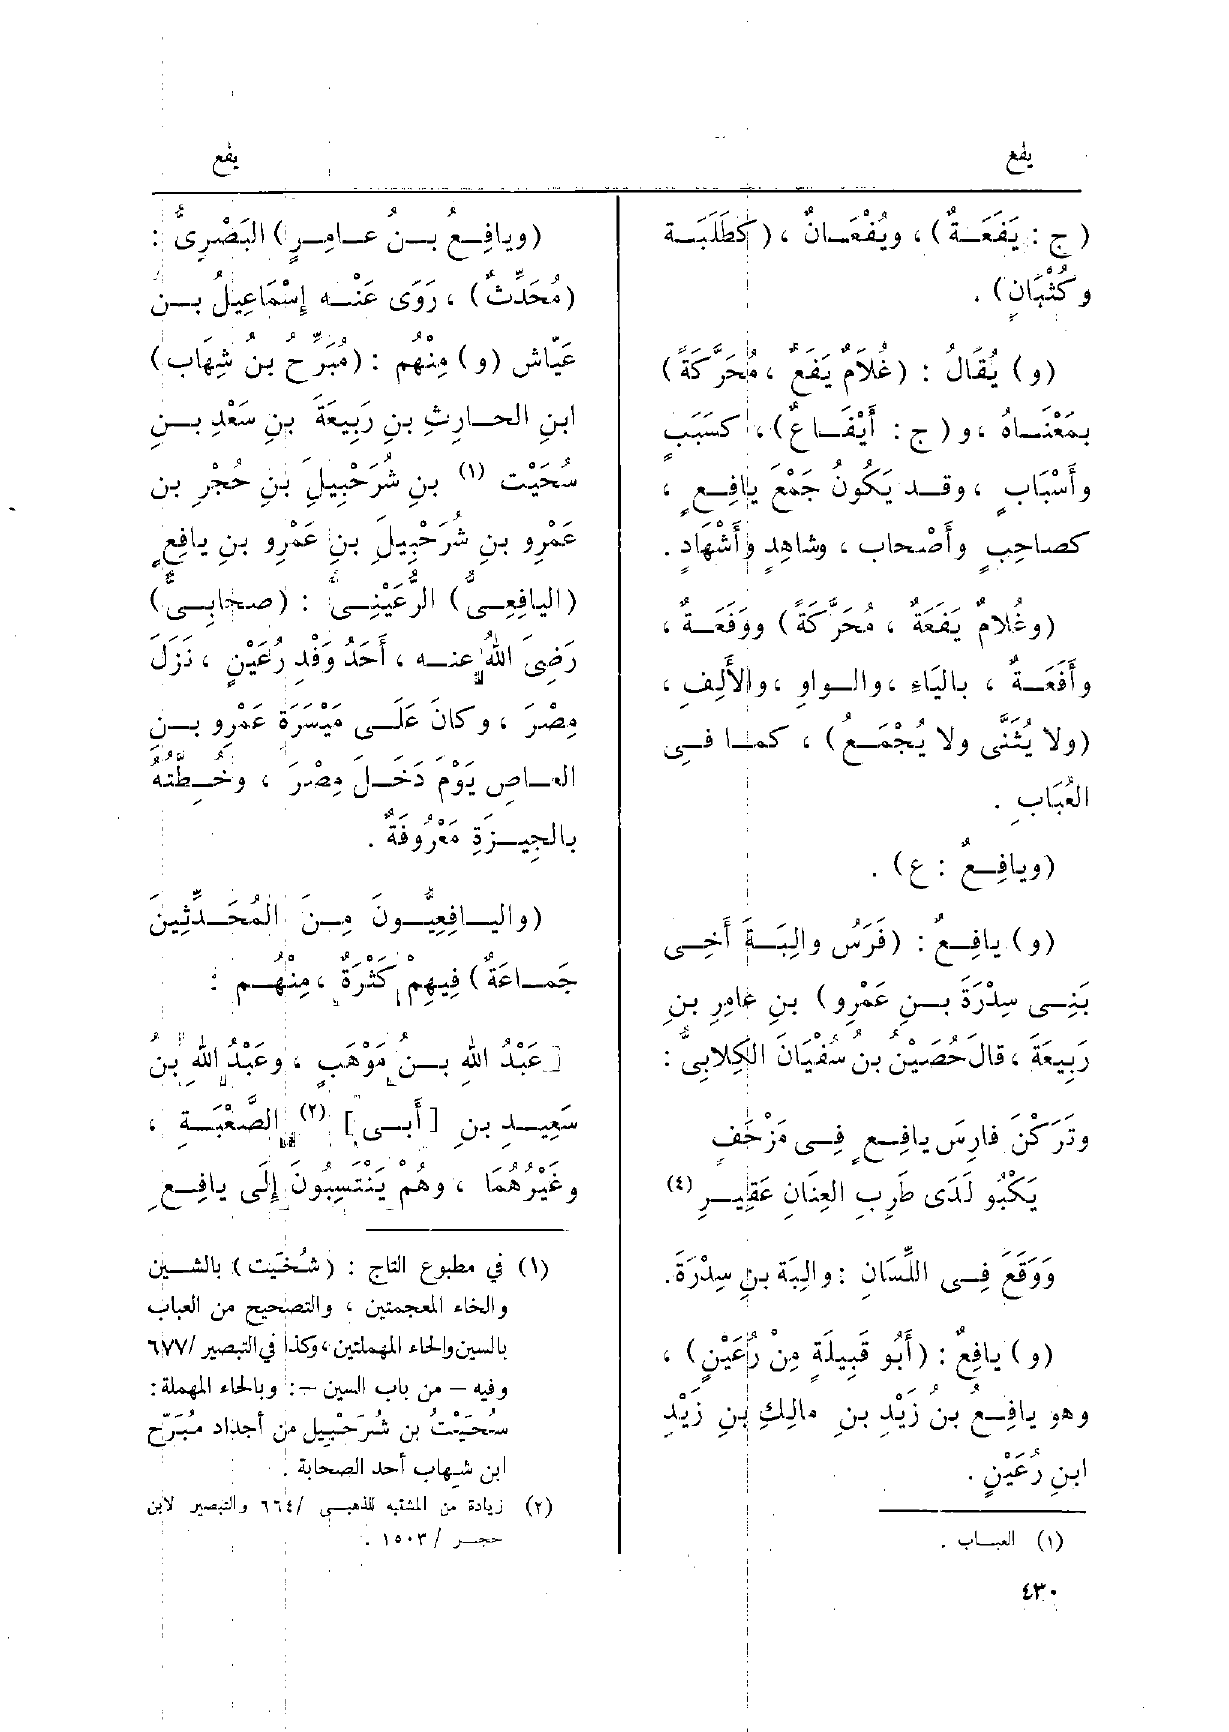 يفع
يفع
( ج : يَفَعَةٌ ) ، ويُفْعَانٌ ، ( كطَلَبَة
وكُثْبَانٍ ) .
( و ) يُقَالُ : ( غُلَامٌ يَفَعٌ ، مُحَرَّكَةً )
بمَعْنَاهُ ، و ( ج : أَيْفَاعٌ ) ، كسَبَبٍ
وأَسْبَابٍ ، وقد يَكُونُ جَمْعَ يافِعٍ ،
كصاحِبٍ وأَصْحاب ، وشاهِدٍ وأَشْهَادٍ .
( وغُلامٌ يَفَعَةٌ ، مُحَرَّكَةً ) ووَفَعَةٌ ،
وأَفَعَةٌ ، بالياءِ ، والواوِ ، والأَلِفِ ،
( ولا يُثَنَّى ولا يُجْمَعُ ) ، كما فى
العُبَابِ .
( ويافِعٌ : ع ) .
( و ) يافِعٌ : ( فَرَسُ والِبَةَ أَخِى
بَنِى سِدْرَةَ بنِ عَمْرِو ) بنِ عامِرِ بنِ
رَبِيعَةَ ، قالَ حُصَيْنُ بنُ سُفْيَانَ الكِلابِىُّ :
وتَرَكْنَ فارِسَ يافِعٍ فِى مَزْحَفٍ
يَكْبُو لَدَى طَرِبِ العِنَانِ عَقِيرِ (٤)
ووَقَعَ فِى اللِّسَانِ : والِبَة بنِ سِدْرَةَ .
( و ) يافِعٌ : ( أَبُو قَبِيلَةٍ مِنْ رُعَيْنٍ ) ،
وهو يافِعُ بنُ زَيْدِ بنِ مالِكِ بنِ زَيْدِ
ابنِ رُعَيْنٍ .
(١) العباب .
٤٣٠
( ويافِعُ بنُ عامِرٍ ) البَصْرِىُّ :
( مُحَدِّثٌ ) ، رَوَى عَنْه إِسْمَاعِيلُ بن
عَيّاش ( و ) مِنْهُم : ( مُبَرِّحُ بنُ شِهَاب )
ابنِ الحارِثِ بنِ رَبِيعَةَ بنِ سَعْدِ بنِ
سُحَيْت (١) بنِ شُرَحْبِيلَ بنِ حُجْرِ بن
عَمْرِو بنِ شُرَحْبِيلَ بنِ عَمْرِو بنِ يافِعٍ
( اليافِعِىُّ ) الرُّعَيْنِىُّ : ( صحابِىٌّ )
رَضِىَ اللهُ عنه ، أَحَدُ وَفْدِ رُعَيْنٍ ، نَزَلَ
مِصْرَ ، وكانَ عَلَى مَيْسَرَةِ عَمْرِو بن
العاصِ يَوْمَ دَخَلَ مِصْرَ ، وخِطَّتُهُ
بالجِيزَةِ مَعْرُوفَةٌ .
( واليافِعِيُّونَ مِنَ المُحَدِّثِينَ
جَماعَةٌ ) فِيهِم كَثْرَةٌ ، مِنْهُم :
[ عَبْدُ اللهِ بنُ مَوْهَبٍ ، وعَبْدُ اللهِ بنُ
سَعِيدِ بنِ [ أَبى ] (٢) الصَّعْبَةِ ،
وغَيْرُهُمَا ، وهُمْ يَنْتَسِبُونَ إِلَى يافِعِ
(١) في مطبوع التاج : ( شُخَيت ) بالشين
والخاء المعجمتين ، والتصحيح من العباب
بالسين والحاء المهملتين ، وكذا في التبصير / ٦٧٧
وفيه – من باب السين – : وبالحاء المهملة :
سُحَيْتُ بن شُرَحْبِيل من أجداد مُبَرِّح
ابن شهاب أحد الصحابة .
(٢) زيادة من المشتبه للذهبى / ٦٦٤ والتبصير لابن
حجر / ١٥٠٣ .